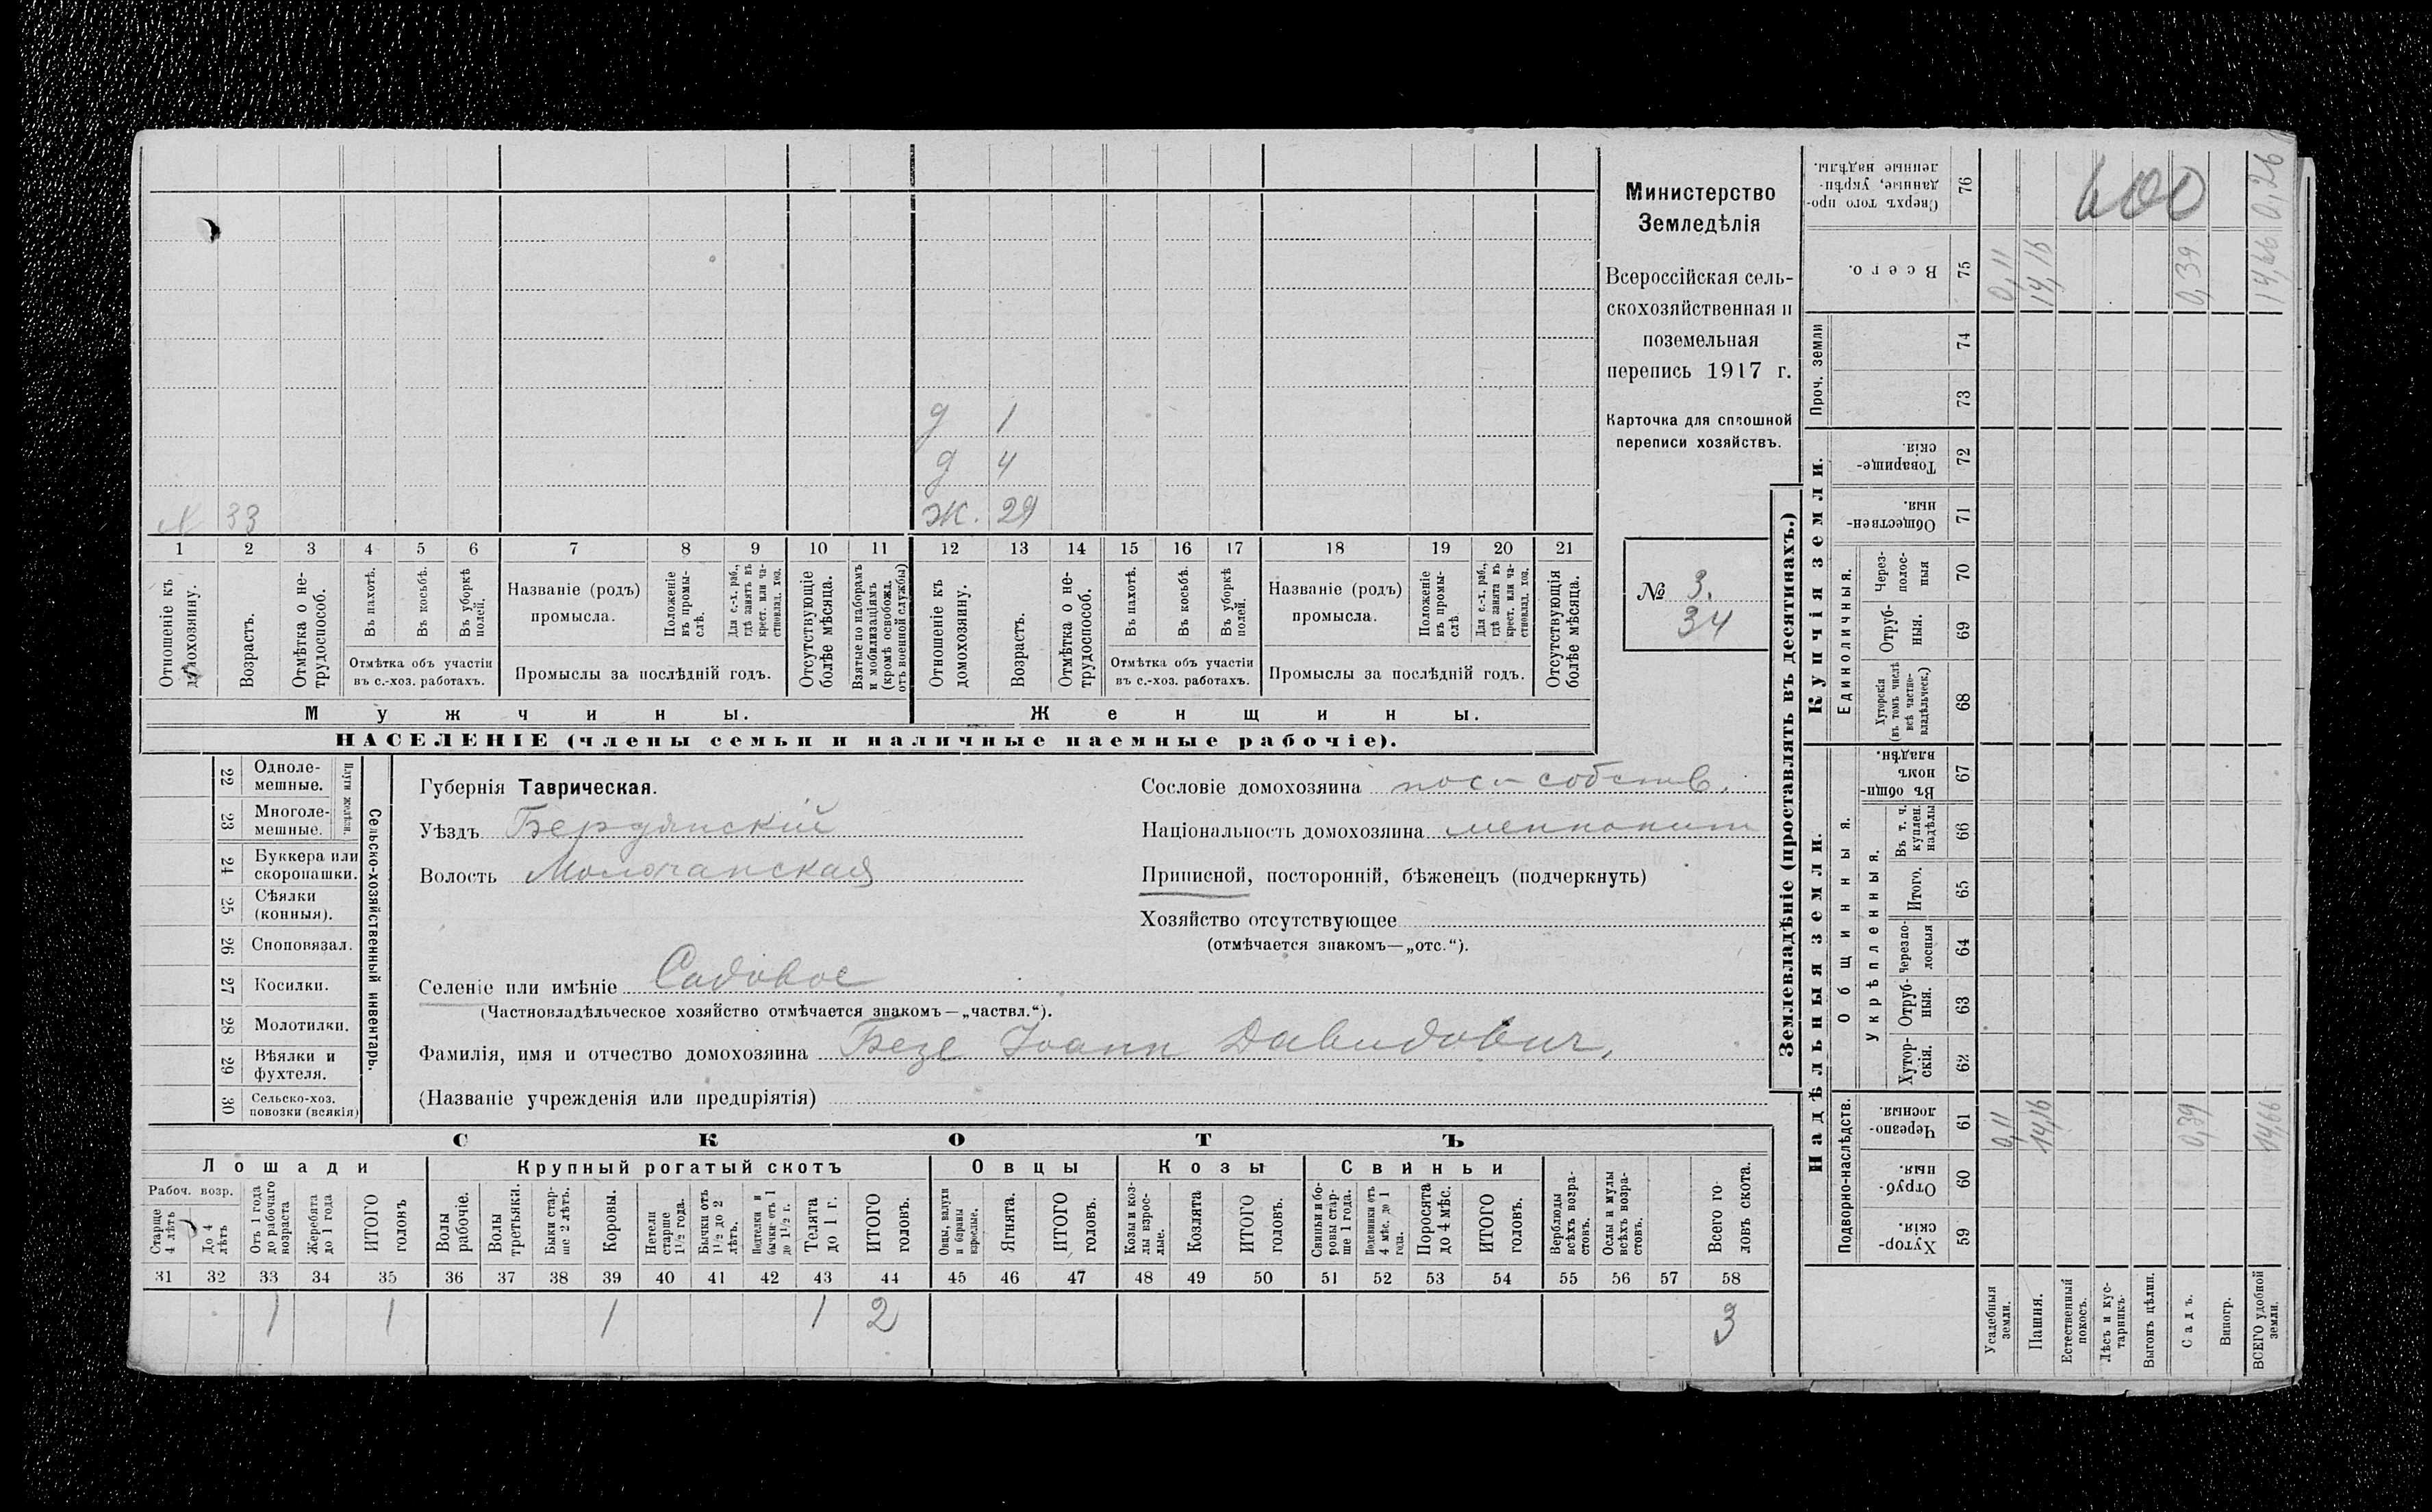 Министерство
Земледѣлія
Всероссійская сель-
скохозяйственная и
поземельная
перепись 1917 г.
Карточка для сплошной
переписи хозяйствъ.
№ 3.
34
д 1
д 4
33
Ж. 29
1 2 3 4 5 6 7 8 9 10 11 12 13 14 15 16 17 18 19 20 21
Отношеніе къ домохозяину.
Возрастъ.
Отмѣтка о не-трудоспособ.
Въ пахотѣ.
Въ косьбѣ.
Въ уборкѣ полей.
Отмѣтка объ участіи
въ с.-хоз. работахъ.
Названіе (родъ)
промысла.
Положеніе въ промы-слѣ.
Для с.-х. раб., гдѣ занятъ въ крест. или ча-стновлад. хоз.
Промыслы за послѣдній годъ.
Отсутствующіе болѣе мѣсяца.
Взятые по наборамъ и мобилизаціямъ (кромѣ освобожд. отъ военной службы)
Отношеніе къ домохозяину.
Возрастъ.
Отмѣтка о не-трудоспособ.
Въ пахотѣ.
Въ косьбѣ.
Въ уборкѣ полей.
Отмѣтка объ участіи
въ с.-хоз. работахъ.
Названіе (родъ)
промысла.
Положеніе въ промы-слѣ
Для с.-х. раб., гдѣ занята въ крест. или ча-стновлад. хоз.
Промыслы за послѣдній годъ.
Отсутствующія болѣе мѣсяца.
Мужчины.
Женщины.
НАСЕЛЕНІЕ (члены семьи и наличные наемные рабочіе).
Сельско-хозяйственный инвентарь.
Плуги желѣзн.
22 Одноле-мешные.
23 Многоле-мешные.
24 Буккера или скоропашки.
25 Сѣялки (конныя).
26 Сноповязал.
27 Косилки.
28 Молотилки.
29 Вѣялки и фухтеля.
30 Сельско-хоз. повозки (всякія)
Губернія Таврическая.
Уѣздъ Бердянскій
Волость Молочанская
Сословіе домохозяина пос-собств.
Національность домохозяина меннонит
Приписной, посторонній, бѣженецъ (подчеркнуть)
Хозяйство отсутствующее
(отмѣчается знакомъ—„отс.“).
Селеніе или имѣніе Садовое
(Частновладѣльческое хозяйство отмѣчается знакомъ—„частвл.“).
Фамилія, имя и отчество домохозяина Безе Іоанн Давидович.
(Названіе учрежденія или предпріятія)
СКОТЪ
Лошади
Крупный рогатый скотъ
Овцы
Козы
Свиньи
Рабоч. возр.
Старше 4 лѣтъ
До 4 лѣтъ
Отъ 1 года до рабочаго возраста
Жеребята до 1 года
ИТОГО головъ
Волы рабочіе.
Волы третьяки.
Быки стар-ше 2 лѣтъ.
Коровы.
Нетели старше 1½ года.
Бычки отъ 1½ до 2 лѣтъ.
Подтелки и бычки отъ 1 до 1½ г.
Телята до 1 г.
ИТОГО головъ.
Овцы, валухи и бараны взрослые.
Ягнята.
ИТОГО головъ.
Козы и коз-лы взрос-лые.
Козлята
ИТОГО головъ.
Свиньи и бо-ровы стар-ше 1 года.
Подсвинки отъ 4 мѣс. до 1 года.
Поросята до 4 мѣс.
ИТОГО головъ.
Верблюды всѣхъ возра-стовъ.
Ослы и мулы всѣхъ возра-стовъ.
Всего го-ловъ скота.
31 32 33 34 35 36 37 38 39 40 41 42 43 44 45 46 47 48 49 50 51 52 53 54 55 56 57 58
1 1 1 1 2 3
Землевладѣніе (проставлять въ десятинахъ.)
Надѣльныя земли.
Купчія земли.
Проч. земли
Подворно-наслѣдств.
Общинныя.
Укрѣпленныя.
Единоличныя.
Хутор-скія. 59
Отруб-ныя. 60
Черезпо-лосныя. 61
Хутор-скія. 62
Отруб-ныя. 63
Черезпо-лосныя 64
Итого. 65
Въ т. ч. куплен. надѣлы 66
Въ общин-номъ владѣн. 67
Хуторскія (въ томъ числѣ всѣ частно-владѣльческ.) 68
Отруб-ныя. 69
Через-полос-ныя 70
Обществен-ныя. 71
Товарище-скія. 72
73
74
Всего. 75
Сверхъ того про-данные, укрѣп-ленные надѣлы. 76
Усадебныя земли. 0,11 0,11
Пашня. 14,16 14,16
Естественный покосъ.
Лѣсъ и кус-тарникъ.
Выгонъ цѣлин.
Садъ. 0,39 0,39
Виногр.
ВСЕГО удобной земли. 14,66 14,66 0,26
600